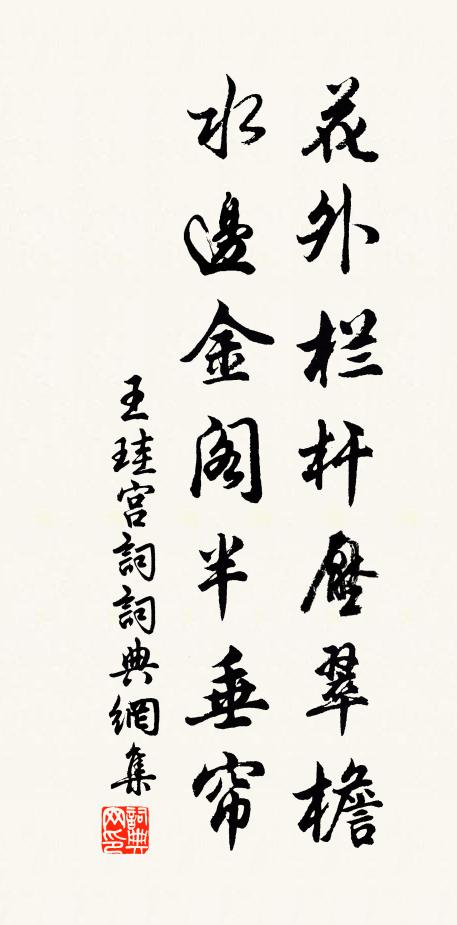 花外栏杆壓翠檐
水邊金阁半垂帘
王珪宫詞詞典網集
詞典网印